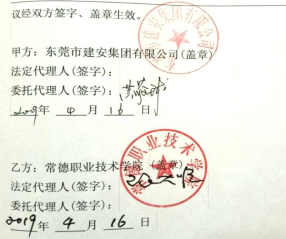 议经双方签字、盖章生效。
甲方：东莞市建安集团有限公司(盖章)
法定代理人(签字)：
委托代理人(签字)：
2019年 4月 16日
乙方：常德职业技术学院 (盖章)
法定代理人(签字)：
委托代理人(签字)：
2019年 4月 16日